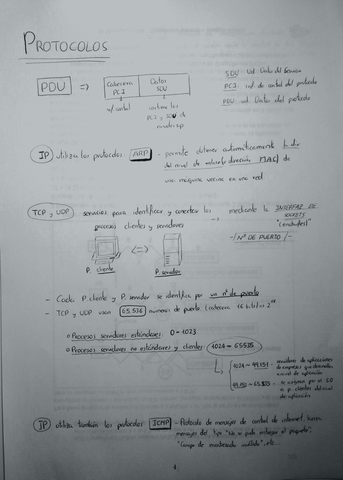 PROTOCOLOS
PDU => Cabecera PCI Datos SDU
SDU: Unid. Datos del Servicio
PCI: inf. de control del protocolo
PDU: Unid. Datos del protocolo
inf. control contiene los
PCI y SDU de
niveles sup.
IP utiliza los protocolos ARP - permite obtener automáticamente la dir
del nivel de enlace (dirección MAC) de
una máquina vecina en una red
TCP y UDP servicios para identificar y conectar los mediante la INTERFAZ DE
procesos clientes y servidores SOCKETS
(=) -/ Nº DE PUERTO /-
P. cliente P. servidor
- Cada P. cliente y P. servidor se identifica por un nº de puerto
- TCP y UDP usan 65.536 números de puerto (cabecera 16 bits)
o Procesos servidores estándares: 0 - 1023
o Procesos servidores no estándares y clientes 1024 - 65535
1024 - 49.151 - servidores de aplicaciones
de empresas que desarrollan
a nivel de aplicación
49.152 - 65.535 - Se asignan por el S.O
a p. clientes del nivel
de aplicación
IP utiliza también los protocolos ICMP - Protocolo de mensajes de control de internet, tiene
mensajes del tipo "No se pudo entregar el paquete",